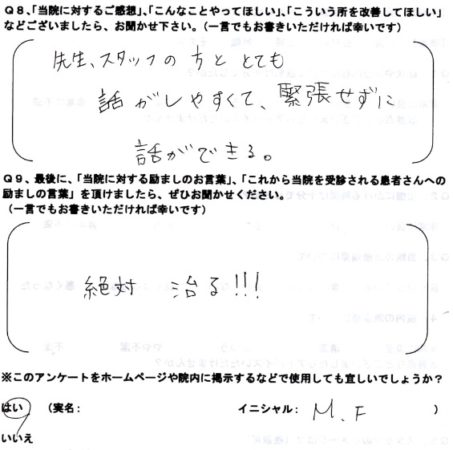 Ｑ８、「当院に対するご感想」、「こんなことやってほしい」、「こういう所を改善してほしい」
などございましたら、お聞かせ下さい。（一言でもお書きいただければ幸いです）
先生、スタッフの方と とても
話がしやすくて、緊張せずに
話ができる。
Ｑ９、最後に、「当院に対する励ましのお言葉」、「これから当院を受診される患者さんへの
励ましの言葉」を頂けましたら、ぜひお聞かせください。
（一言でもお書きいただければ幸いです）
絶対 治る!!!
※このアンケートをホームページや院内に掲示するなどで使用しても宜しいでしょうか？
はい （実名： イニシャル： M.F ）
いいえ